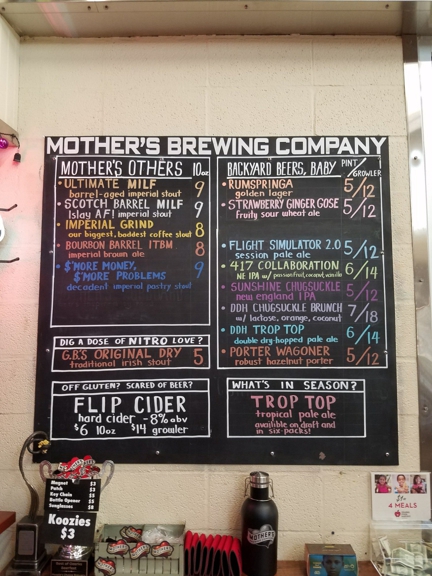 MOTHER'S BREWING COMPANY
MOTHER'S OTHERS 10oz
ULTIMATE MILF 9
barrel-aged imperial stout
SCOTCH BARREL MILF 9
Islay AF! imperial stout
IMPERIAL GRIND 8
our biggest, baddest coffee stout
BOURBON BARREL ITBM 8
imperial brown ale
$'MORE MONEY, 9
$'MORE PROBLEMS
decadent imperial pastry stout
DIG A DOSE OF NITRO LOVE?
G.R'S ORIGINAL DRY 5
traditional irish stout
OFF GLUTEN? SCARED OF BEER?
FLIP CIDER
hard cider - 8% abv
$6 10oz $14 growler
BACKYARD BEERS, BABY PINT/GROWLER
RUMSPRINGA 5/12
golden lager
STRAWBERRY GINGER GOSE 5/12
fruity sour wheat ale
FLIGHT SIMULATOR 2.0 5/12
session pale ale
417 COLLABORATION 6/14
NE IPA w/ passionfruit, coconut, vanilla
SUNSHINE CHUGSUCKLE 5/12
new england IPA
DDH CHUGSUCKLE BRUNCH 7/18
w/ lactose, orange, coconut
DDH TROP TOP 6/14
double dry-hopped pale ale
PORTER WAGONER 5/12
robust hazelnut porter
WHAT'S IN SEASON?
TROP TOP
tropical pale ale
available on draft and
in six-packs!
Magnet $3
Patch $3
Key Chain $5
Bottle Opener $5
Sunglasses $8
Koozies
$3
MOTHER'S
4 MEALS